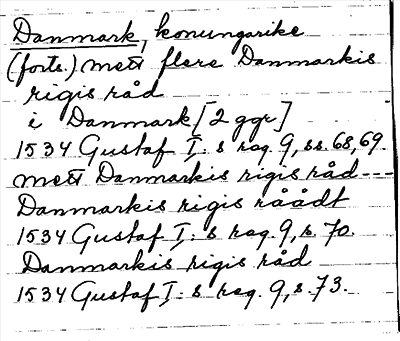 Danmark, konungarike
(forts.) mett flere Danmarkis
rigis råd
i Danmark [2 ggr]
1534 Gustaf I:s reg. 9, ss. 68, 69.
mett Danmarkis rigis råd ---
Danmarkis rigis råådt
1534 Gustaf I:s reg. 9, s. 70.
Danmarkis rigis råd
1534 Gustaf I:s reg. 9, s. 73.